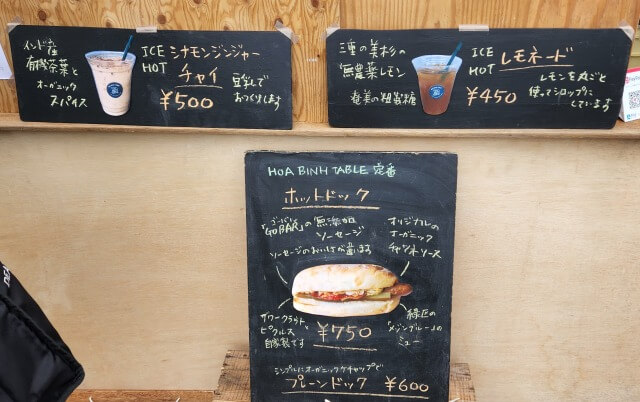 インド産
有機茶葉と
オーガニック
スパイス
ICE シナモンジンジャー
HOT チャイ
¥500
豆乳で
おつくりします
三重の美杉の
無農薬レモン
奄美の粗製糖
ICE
HOT レモネード
¥450
レモンを丸ごと
使ってシロップに
しています
HOA BINH TABLE 定番
ホットドック
「GOBAR」の無添加
ソーセージ
ソーセージのおいしさが違います
オリジナルの
オーガニック
チャツネソース
サワークラウト
ピクルス
自家製です
¥750
緑区の
「メゾンブルー」の
シンプルにオーガニックケチャップで
プレーンドック ¥600